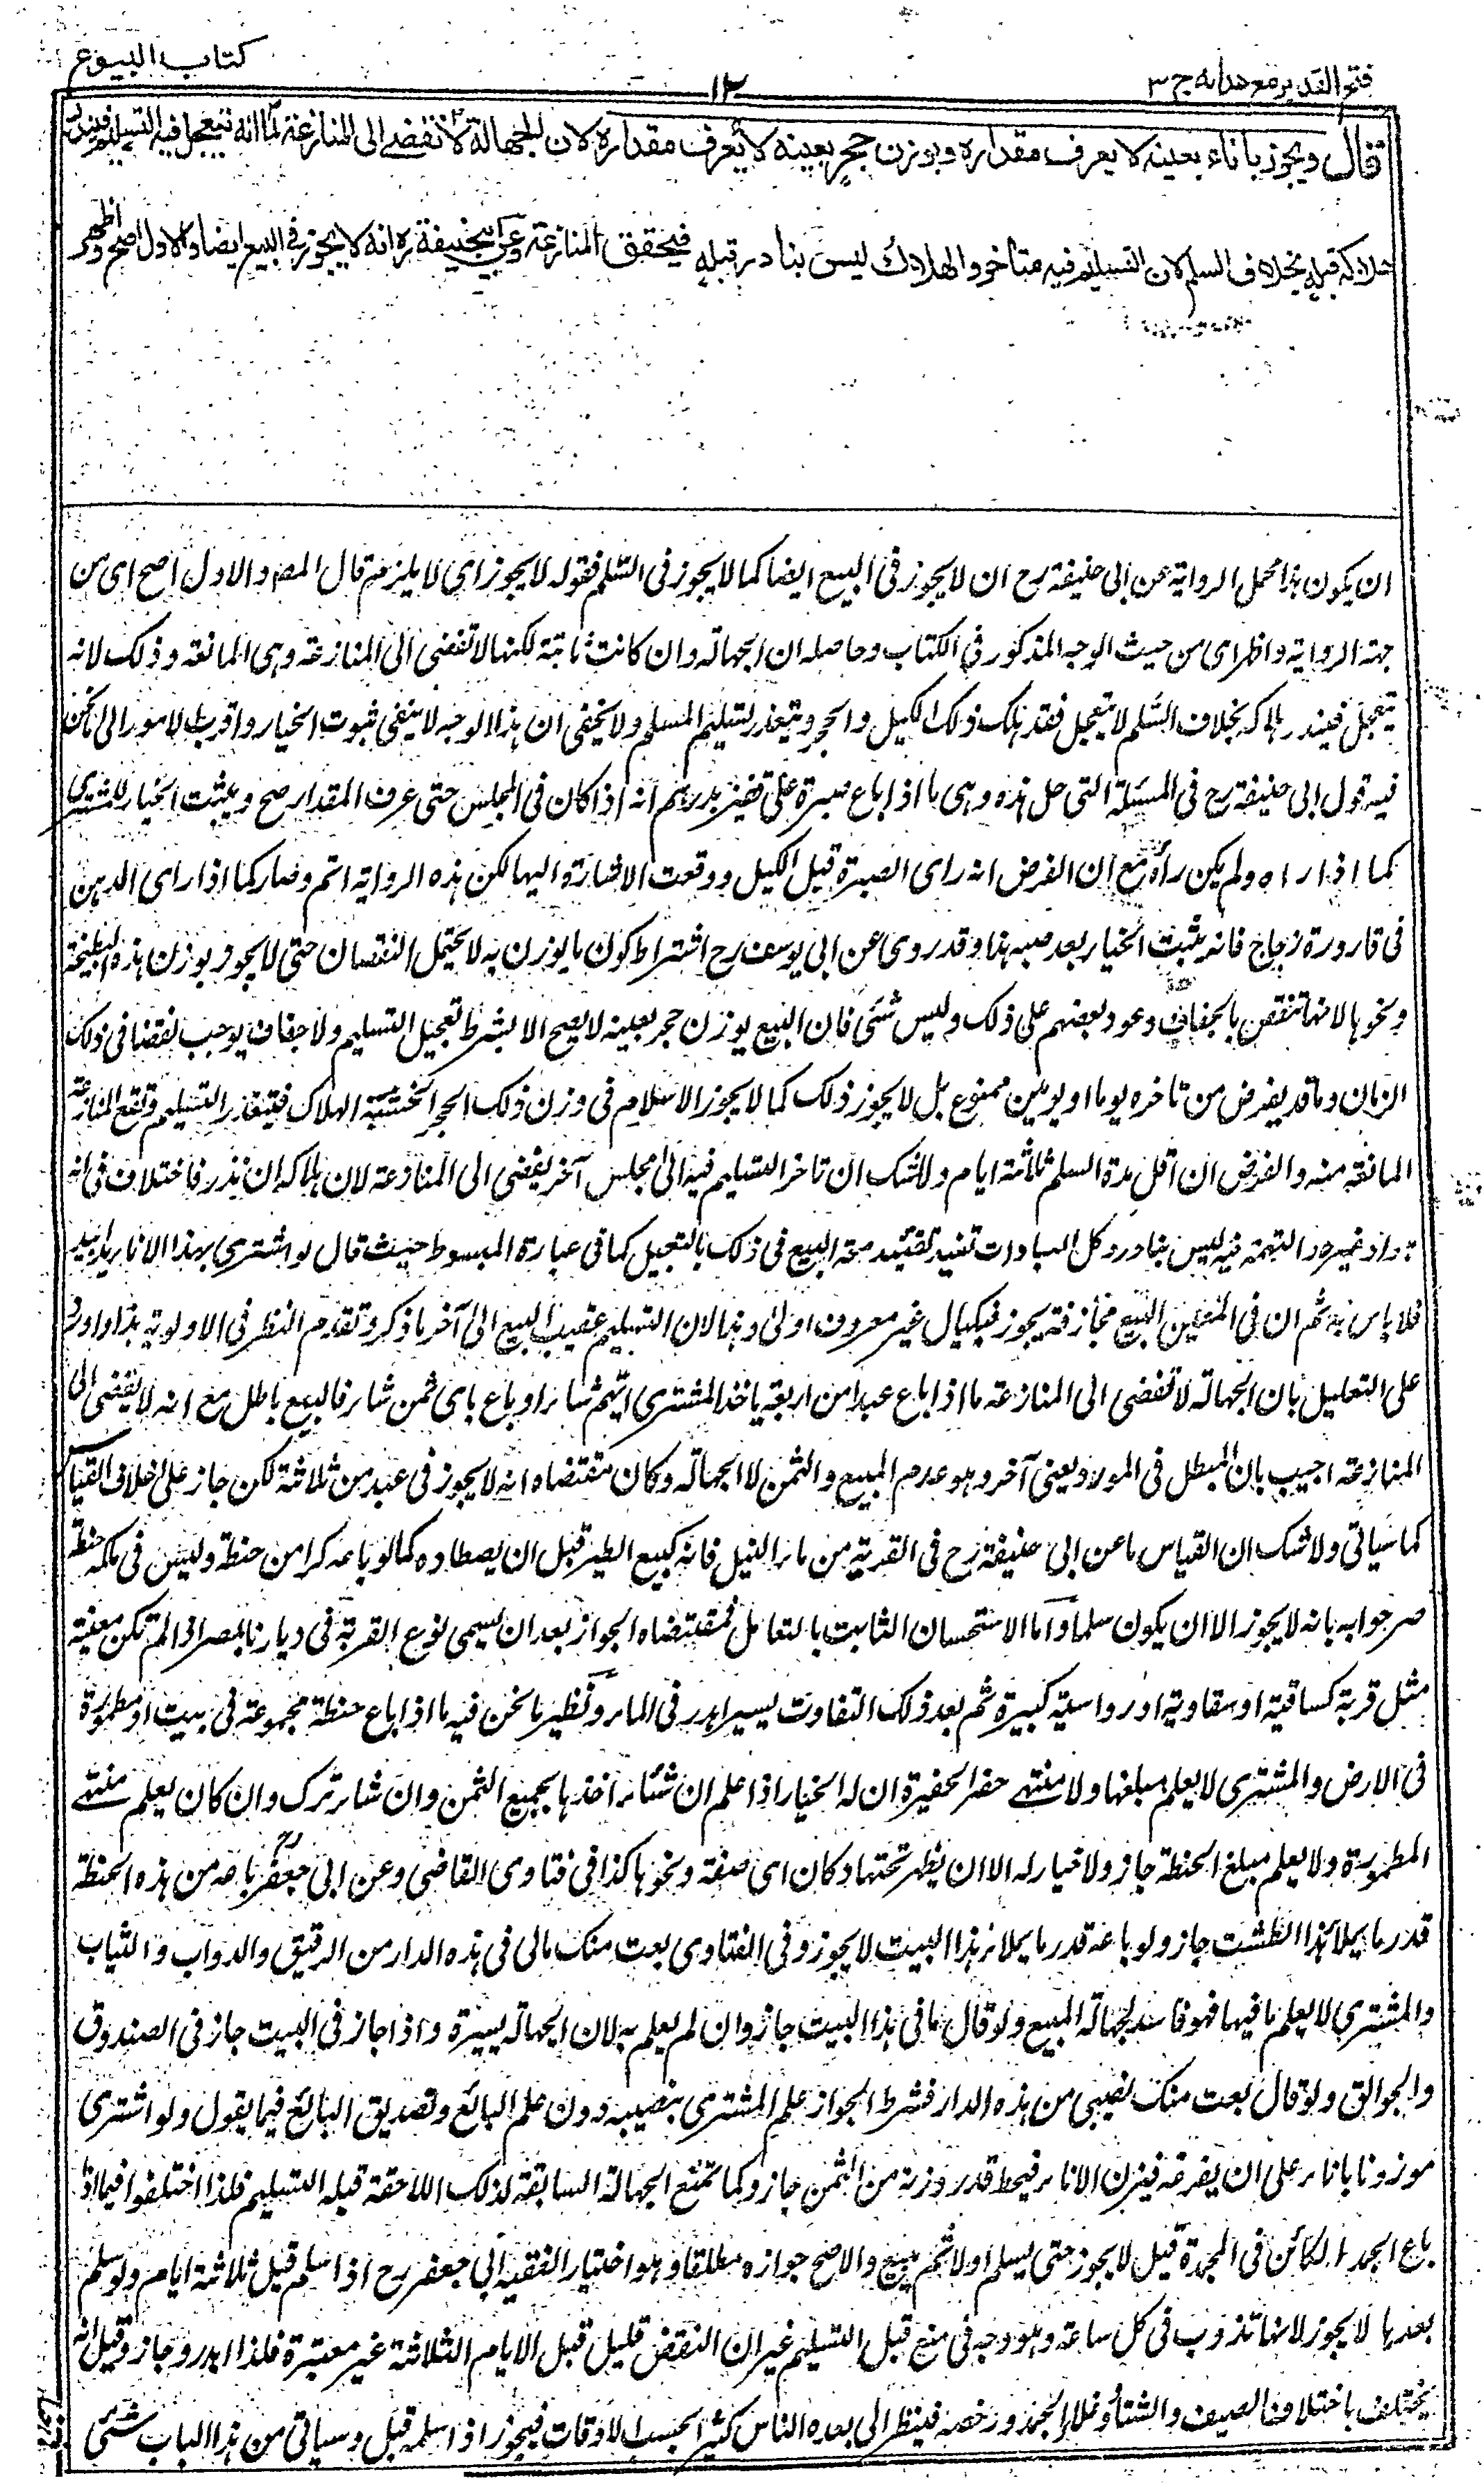 فتح القدير مع هدايه ج ٣
١٢
كتاب البيوع
قال ويجوز باناء بعينه لا يعرف مقداره وبوزن حجر بعينه لا يعرف مقداره لان الجهالة لا تفضى الى المنازعة لما انه يتعجل فيه التسليم فيندر
هلاكه قبله بخلاف السلم لان التسليم فيه متأخر والهلاك ليس بنادر قبله فيتحقق المنازعة وعن ابيحنيفة ره انه لا يجوز فى البيع ايضا والاول اصح واظهر
ان يكون هذا محمل الرواية عن ابى حنيفة رح ان لا يجوز فى البيع ايضا كما لا يجوز فى السلم فقوله لا يجوز اى لا يلزم قال المصـ والاول اصح اى من
جهة الرواية واظهر اى من حيث الوجه المذكور فى الكتاب وحاصله ان الجهالة وان كانت ثابتة لكنها لا تفضى الى المنازعة وهى المانعة وذلك لانه
يتعجل فيندر هلاكه بخلاف السلم لا يتعجل فقد يهلك ذلك الكيل والحجر ويتعذر تسليم المسلم ولا يخفى ان هذا الوجه لا ينفى ثبوت الخيار واقرب الامور الى ما نحن
فيه قول ابى حنيفة رح فى المسئلة التى حل هذه وهى ما اذا باع صبرة على قفيز بدرهم انه اذا كان فى المجلس حتى عرف المقدار صح ويثبت الخيار للمشترى
كما اذا راه ولم يكن رآه مع ان الفرض انه راى الصبرة قبل الكيل ووقعت الاشارة اليها لكن هذه الرواية اتم وصار كما اذا راى الدهن
فى قارورة زجاج فانه يثبت الخيار بعد صبه هذا وقد روى عن ابى يوسف رح اشتراط كون ما يوزن به لا يحتمل النقصان حتى لا يجوز بوزن هذه البطيخة
ونحوها لانها تنقص بالجفاف وعود بعضهم على ذلك وليس شئ فان البيع بوزن حجر بعينه لا يصح الا بشرط تعجيل التسليم ولا جفاف يوجب نقصا فى ذلك
الزمان وما قد يفرض من تاخره يوما او يومين ممنوع بل لا يجوز ذلك كما لا يجوز الاسلام فى وزن ذلك الحجر لخشية الهلاك فيتعذر التسليم وتقع المنازعة
المانعة منه والفرض ان اقل مدة السلم ثلاثة ايام ولا شك ان تاخر التسليم فيه الى مجلس آخر يفضى الى المنازعة لان هلاكه ان ندر فاختلاف فى انه
هو او غيره والتهمة فيه ليس بنادر وكل العبارات تفيد تقييد صحة البيع فى ذلك بالتعجيل كما فى عبارة المبسوط حيث قال لو اشترى بهذا الاناء يدا بيد
فلا باس به ثم ان فى المعين البيع مجازفة يجوز فبمكيال غير معروف اولى وهذا لان التسليم عقيب البيع الى آخر ما ذكر وتقدم النظر فى الاولوية هذا واورد
على التعليل بان الجهالة لا تفضى الى المنازعة ما اذا باع عبدا من اربعة ياخذ المشترى ايهم شاء او باع باى ثمن شاء فالبيع باطل مع انه لا يفضى الى
المنازعة اجيب بان المبطل فى المورد يعنى آخر وهو عدم المبيع والثمن لا الجهالة وكان مقتضاه انه لا يجوز فى عبد من ثلاثة لكن جاز على خلاف القياس
كما سياتى ولا شك ان القياس ما عن ابى حنيفة رح فى القربة من ماء النيل فانه كبيع الطير قبل ان يصطاده كما لو باعه كرا من حنطة وليس فى ملكه حنطة
صر جوابه بانه لا يجوز الا ان يكون سلما واما الاستحسان الثابت بالتعامل فمقتضاه الجواز بعد ان يسمى نوع القربة فى ديارنا بمصر اذا لم تكن معينة
مثل قربة كساقية او سقاوية او رواسية كبيرة ثم بعد ذلك التفاوت يسير اهدر فى الماء ونظير ما نحن فيه ما اذا باع حنطة مجموعة فى بيت او مطمورة
فى الارض والمشترى لا يعلم مبلغها ولا منتهى حفر الحفيرة ان له الخيار اذا علم ان شاء اخذها بجميع الثمن وان شاء ترك وان كان يعلم منتهى
المطمورة ولا يعلم مبلغ الحنطة جاز ولا خيار له الا ان يظهر تحتها دكان اى صفة ونحوها كذا فى فتاوى القاضى وعن ابى جعفر رح باعه من هذه الحنطة
قدر ما يملأ هذا الطشت جاز ولو باعه قدر ما يملأ هذا البيت لا يجوز وفى الفتاوى بعت منك مالى فى هذه الدار من الرقيق والدواب والثياب
والمشترى لا يعلم ما فيها فهو فاسد لجهالة المبيع ولو قال ما فى هذا البيت جاز وان لم يعلم به لان الجهالة يسيرة واذا جاز فى البيت جاز فى الصندوق
والجوالق ولو قال بعت منك نصيبى من هذه الدار فشرط الجواز علم المشترى بنصيبه دون علم البائع وتصديق البائع فيما يقول ولو اشترى
موزونا باناء على ان يفرغه فيزن الاناء فيحط قدر وزنه من الثمن جاز وكما تمنع الجهالة السابقة كذلك اللاحقة قبله التسليم فلذا اختلفوا فيما اذا
باع الجمد الكائن فى المجمدة قيل لا يجوز حتى يسلم اولا ثم يبيع والاصح جوازه مطلقا وهو اختيار الفقيه ابى جعفر رح اذا سلم قبل ثلاثة ايام ولو سلم
بعدها لا يجوز لانها تذوب فى كل ساعة وهو وجه فى منع قبل التسليم غير ان النقص قليل قبل الايام الثلاثة غير معتبرة فلذا اهدر وجاز وقيل انه
يختلف باختلاف الصيف والشتاء وغلاء الجمد ورخصه فينظر الى ما يعده الناس كثيرا بحسب الاوقات فيجوز اذا سلمه قبل وسياتى من هذا الباب شئ